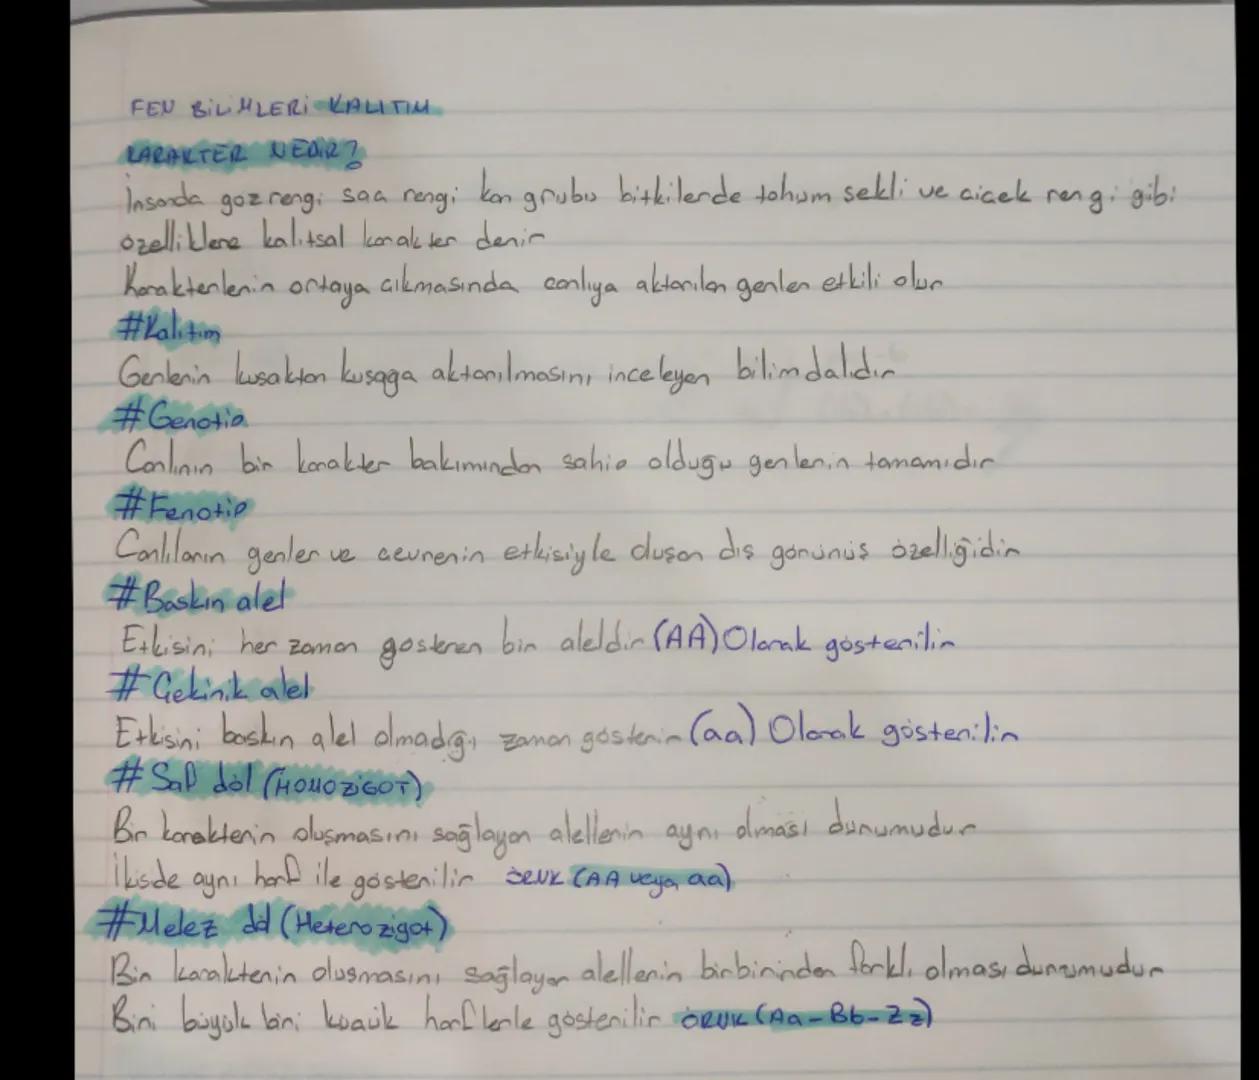 FEN BİLİMLERİ KALITIM
KARAKTER NEDİR?
İnsanda göz rengi saç rengi kan grubu bitkilerde tohum sekli ve cicek rengi gibi
özelliklere kalıtsal karakter denir
Karakterlerin ortaya cıkmasında canlıya aktarılan genler etkili olur
#Kalıtım
Genlerin kusaktan kusaga aktarılmasını inceleyen bilim dalıdır
#Genotip
Canlının bir karakter bakımından sahip olduğu genlerin tamamıdır
#Fenotip
Canlıların genler ve cevrenin etkisiyle oluşan dış görünüş özelliğidir
#Baskın alel
Etkisini her zaman gosteren bir aleldir (AA) Olarak gösterilir
#Cekinik alel
Etkisini baskın alel olmadığı zaman gösterir (aa) Olarak gösterilir
#Saf döl (HOMOZİGOT)
Bir karakterin oluşmasını sağlayan alellerin aynı olması durumudur
İkiside aynı harf ile gösterilir ÖRNK (AA veya aa)
#Melez döl (Heterozigot)
Bir karakterin olusmasını sağlayan alellerin birbirinden farklı olması durumudur
Biri büyük biri kücük harflerle gösterilir ÖRNK (Aa-Bb-Zz)